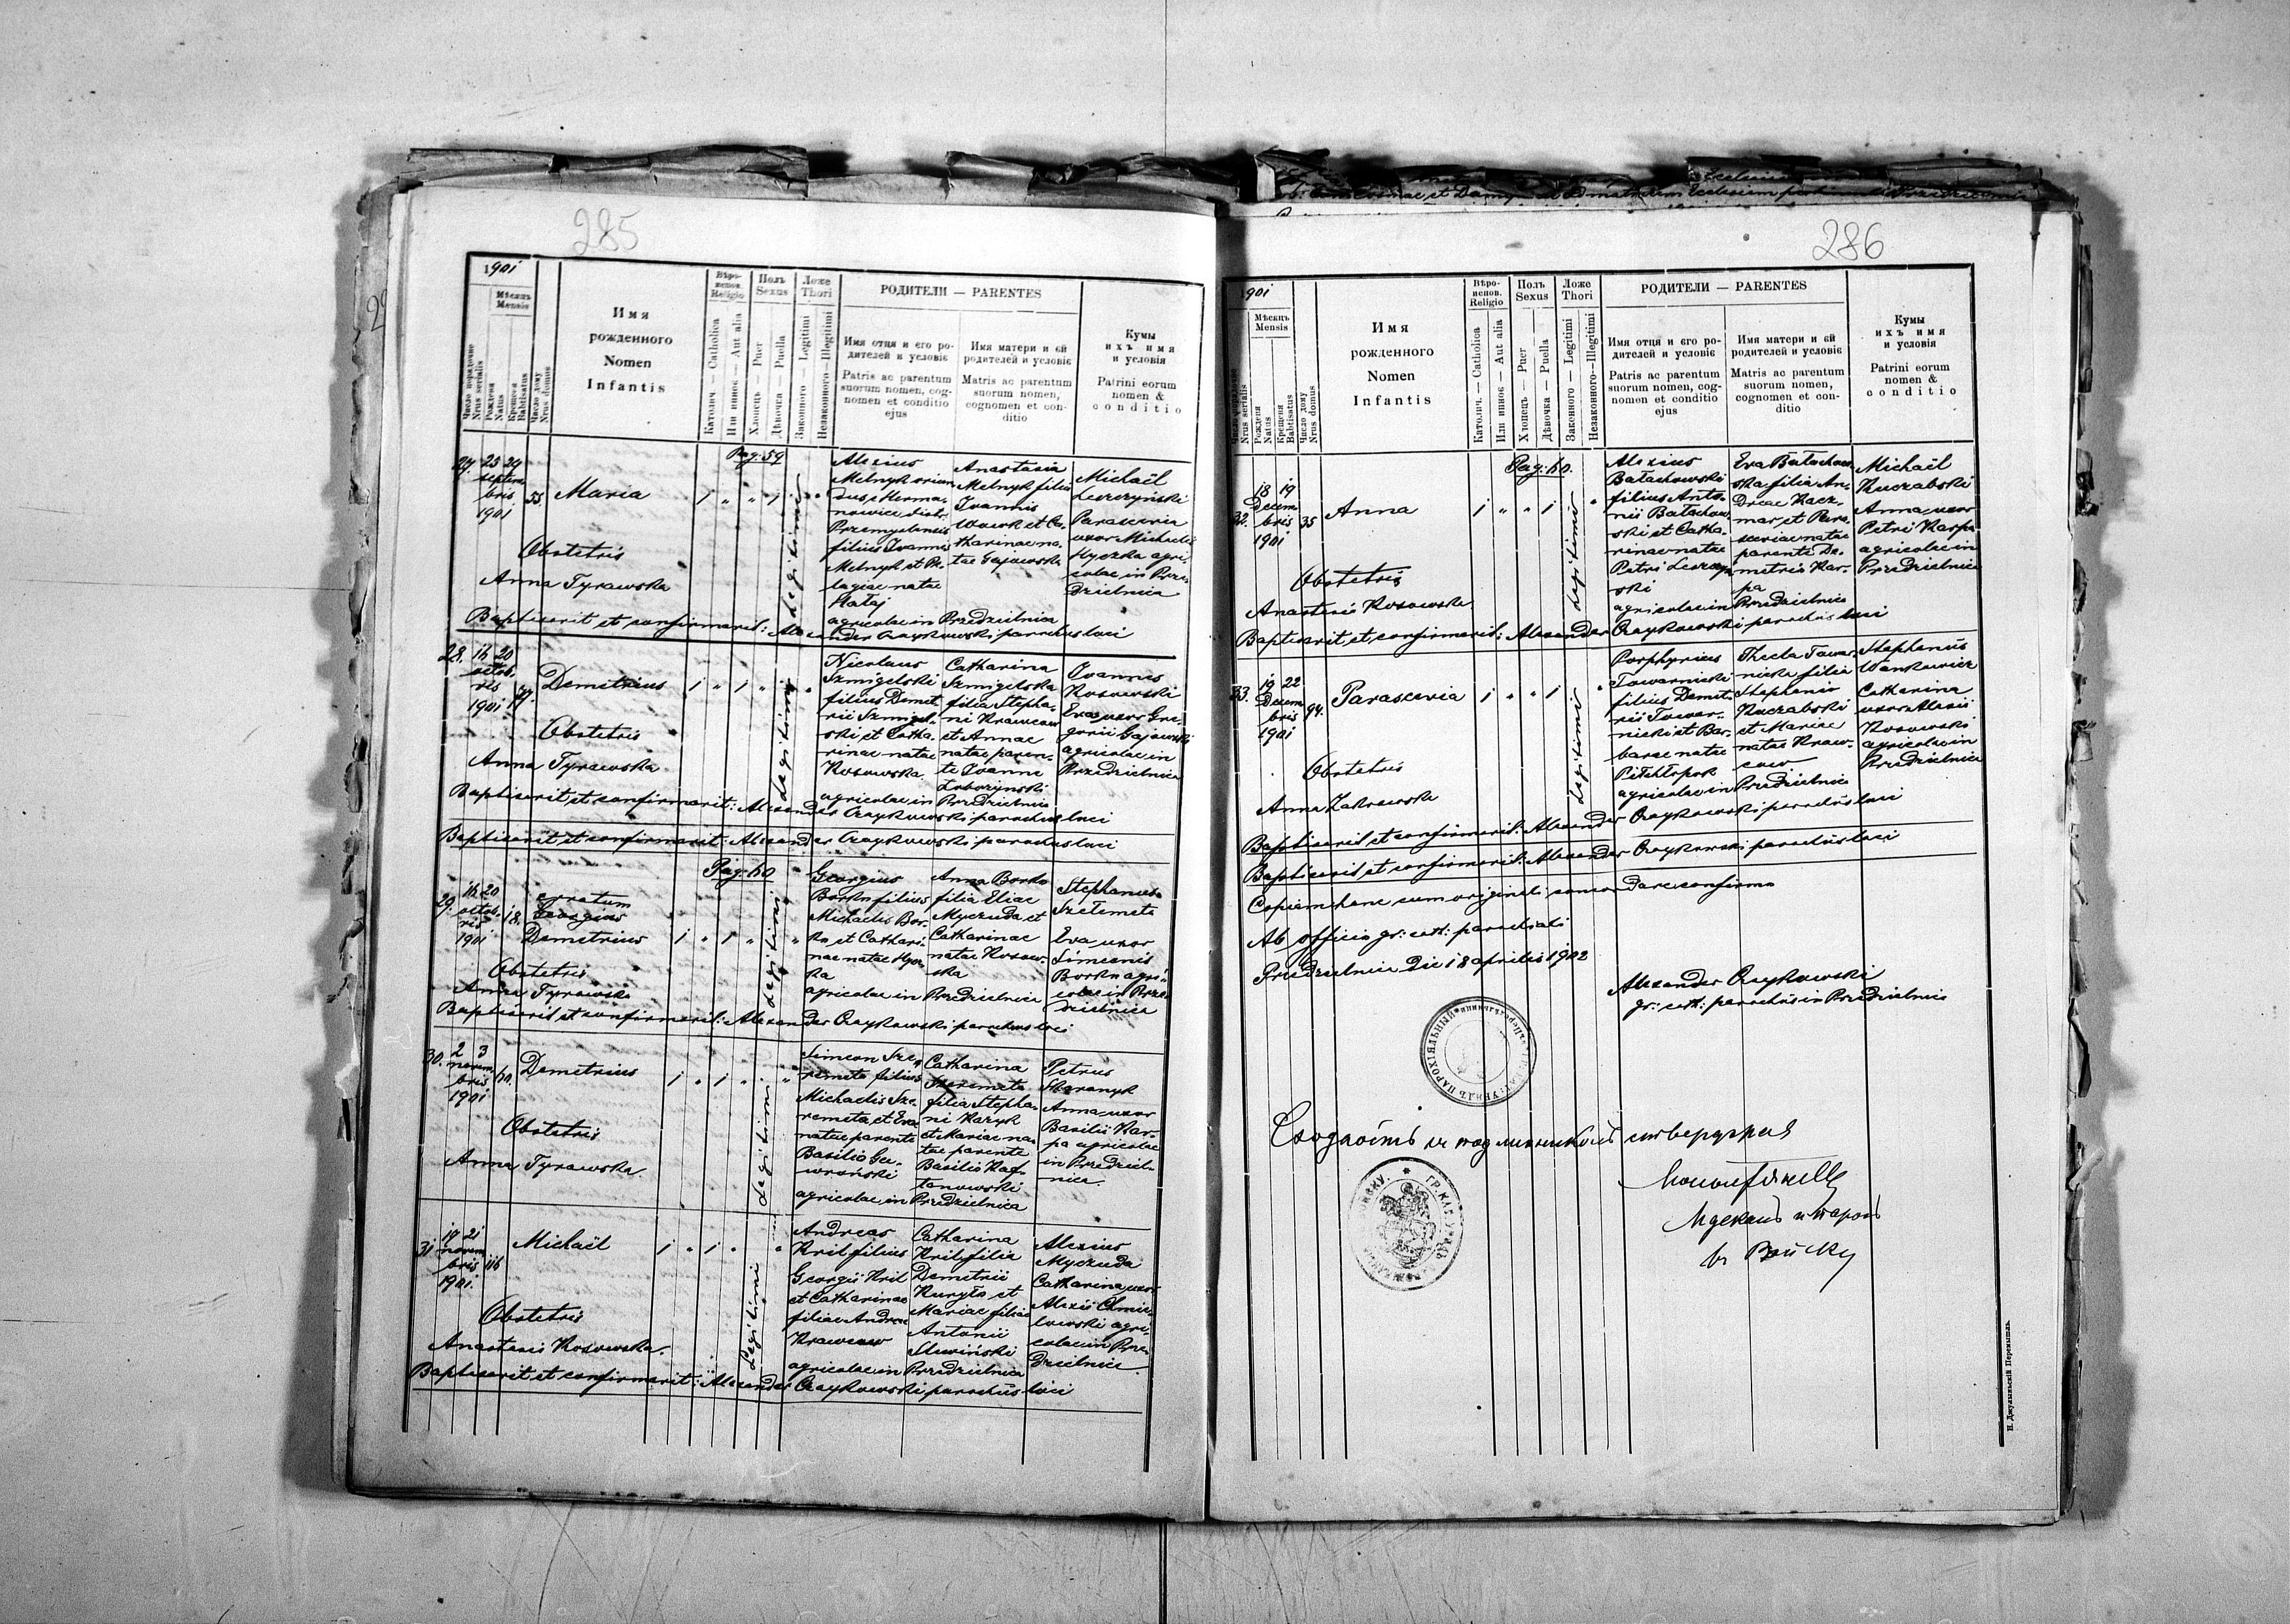 285
1901
Мѣсяць
Mensis
Число порядочне
Nrus serialis
Рожденя
Natus
Крещеня
Babtisatus
Число дому
Nrus domus
Имя
рожденного
Nomen
Infantis
Вѣро-
испов.
Religio
Католич. — Catholica
Или инноє — Aut alia
Полъ
Sexus
Хлопець — Puer
Дѣвочка — Puella
Ложе
Thori
Законного — Legitimi
Незаконного — Illegitimi
РОДИТЕЛИ — PARENTES
Имя отця и єго ро-
дителей и условіє
Patris ac parentum
suorum nomen, cog-
nomen et conditio
ejus
Имя матери и єй
родителей и условіє
Matris ac parentum
suorum nomen,
cognomen et con-
ditio
Кумы
ихъ имя
и условія
Patrini eorum
nomen &
conditio
Pag: 59
27. 23 29
septem
bris
1901
55
Maria
1 " " 1 "
Legitimi
Obstetris
Anna Tyrawska
Alexius
Melnyk oriun
dus e Herma-
nowice distr.
Przemyslensis
filius Ivannis
Melnyk et Pe-
lagiae natae
Hałaj
Anastasia
Melnyk filia
Ivannis
Wowk et Ca-
tharinae na-
tae Gajowska
agricolae in Przedzielnica
Michaël
Leszczyński
Parascevia
uxor Michaelis
Hyczka agri-
colae in Prze-
dzielnica
Baptisavit et confirmavit: Alexander Czaykowski parochus loci
28. 16 20
octob.
ris
1901
17.
Demetrius
1 " 1 " "
Legitimi
Obstetris
Anna Tyrawska
Nicolaus
Szmigelski
filius Demet
rii Szmigel-
ski et Catha-
rinae natae
Kosowska
Catharina
Szmigelska
filia Stepha-
ni Krawcow
et Annae
natae paren-
te Ivanne
Lobozynski
agricolae in Przedzielnica
Ivannes
Kosowski
Eva uxor Gre-
gorii Gajowski
agricolae in
Przedzielnica
Baptisavit et confirmavit: Alexander Czaykowski parochus loci
Baptisavit et confirmavit: Alexander Czaykowski parochus loci
Pag: 60
29. 16 20
octob.
ris
1901
18.
Georgius
Demetrius
1 " 1 " "
Legitimi
Obstetris
Anna Tyrawska
Georgius
Borkn filius
Michaelis Bor-
kn et Cathari-
nae natae
Anna Borko
filia Eliae
Myczuda et
Catharinae
natae Kosow-
ska
agricolae in Przedzielnica
Stephanus
Szełemeta
Eva uxor
Simeonis
Borkn agri-
colae in Prze-
dzielnica
Baptisavit et confirmavit: Alexander Czaykowski parochus loci
30. 2 3
novem
bris
1901
60.
Demetrius
1 " 1 " "
Legitimi
Obstetris
Anna Tyrawska.
Simeon Sze-
remeta filius
Michaelis Sze-
remeta et Eva
natae parente
Basilio Ga-
wroński
Catharina
Szeremeta
filia Stepha-
ni Kazyk
et Mariae na-
tae parente
Basilio Kaf-
tanowski
agricolae in Przedzielnica
Petrus
Anna uxor
Basilii Kar-
pa agricolae
in Przedziel-
nica.
31. 19 21
novem
bris
1901.
116
Michaël
1 " 1 " "
Legitimi
Obstetris
Anastasia Kosowska.
Andreas
Kril filius
Georgii Kril
et Catharinae
filiae Andreae
Krawcow
Catharina
Kril filia
Demetrii
Kuryło et
Mariae filiae
Antonii
Sliwiński
agricolae in Przedzielnica
Alexius
Myczuda
Catharina uxor
Alexii Chmie-
lowski agri-
colae in Prze-
dzielnica
Baptisavit et confirmavit: Alexander Czaykowski parochus loci
286
1901
Мѣсяць
Mensis
Число порядочне
Nrus serialis
Рожденя
Natus
Крещеня
Babtisatus
Число дому
Nrus domus
Имя
рожденного
Nomen
Infantis
Вѣро-
испов.
Religio
Католич. — Catholica
Или инноє — Aut alia
Полъ
Sexus
Хлопець — Puer
Дѣвочка — Puella
Ложе
Thori
Законного — Legitimi
Незаконного — Illegitimi
РОДИТЕЛИ — PARENTES
Имя отця и єго ро-
дителей и условіє
Patris ac parentum
suorum nomen, cog-
nomen et conditio
ejus
Имя матери и єй
родителей и условіє
Matris ac parentum
suorum nomen,
cognomen et con-
ditio
Кумы
ихъ имя
и условія
Patrini eorum
nomen &
conditio
Pag: 60.
32. 18 19
Decem
bris
1901
35
Anna
1 " " 1 "
Legitimi
Obstetris
Anastasia Kosowska
Alexius
Bałachowski
filius Anto-
nii Bałachow-
ski et Catha-
rinae natae
Petri Leszczyn
ski
Eva Bałachow-
ska filia An-
dreae Kacz-
mar et Para-
sceviae natae
parente De-
metrio Kar-
pa
agricolae in Przedzielnica
Michaël
Kuczabski
Anna uxor
Petri Karpa
agricolae in
Przedzielnica
Baptisavit et confirmavit: Alexander Czaykowski parochus loci
33. 19 22
Decem
bris
1901
94.
Parascevia
1 " " 1 "
Legitimi
Obstetris
Anna Zakrewska
Porphyrius
Towarnicki
filius Demet-
rii Towar-
nicki et Bar-
barae natae
Thecla Towar-
nicka filia
Stephanio
Kuczabski
et Mariae
natae Kraw-
cow
agricolae in Przedzielnica
Stephanus
Wankowicz
Catharina
uxor Alexii
Kosowski
agricolae in
Przedzielnica
Baptisavit et confirmavit: Alexander Czaykowski parochus loci
Baptisavit et confirmavit: Alexander Czaykowski parochus loci
Copiam hanc cum originali concordare confirmo
Ab officio gr: cath: parochiali
Przedzielnica die 18 aprilis 1902
Alexander Czaykowski
gr: cath: parochus in Przedzielnica
Сходность съ подлинникомъ стверджая
въ
Н. Джулыньскій Перемышль.